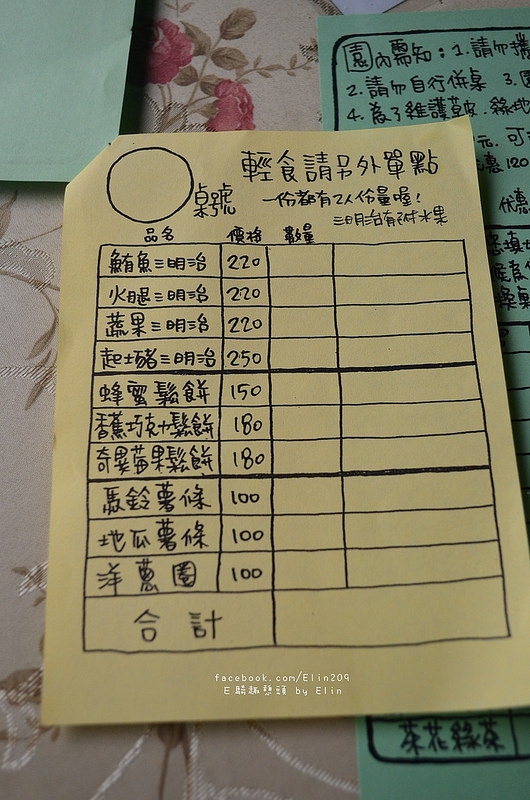 園內需知：1.請勿攜
2.請勿自行併桌 3.
4.為了維護草皮.綠地
元.可
惠120
优惠
輕食請另外單點
桌號
一份都有2人份量喔!
三明治有附水果
品名 價格 數量
鮪魚三明治 220
火腿三明治 220
蔬果三明治 220
起士豬三明治 250
蜂蜜鬆餅 150
香蕉巧克力鬆餅 180
奇異莓果鬆餅 180
馬鈴薯條 100
地瓜薯條 100
洋蔥圈 100
合計
facebook.com/Elin209
E騎趣懸頭 by Elin
茶花綠茶